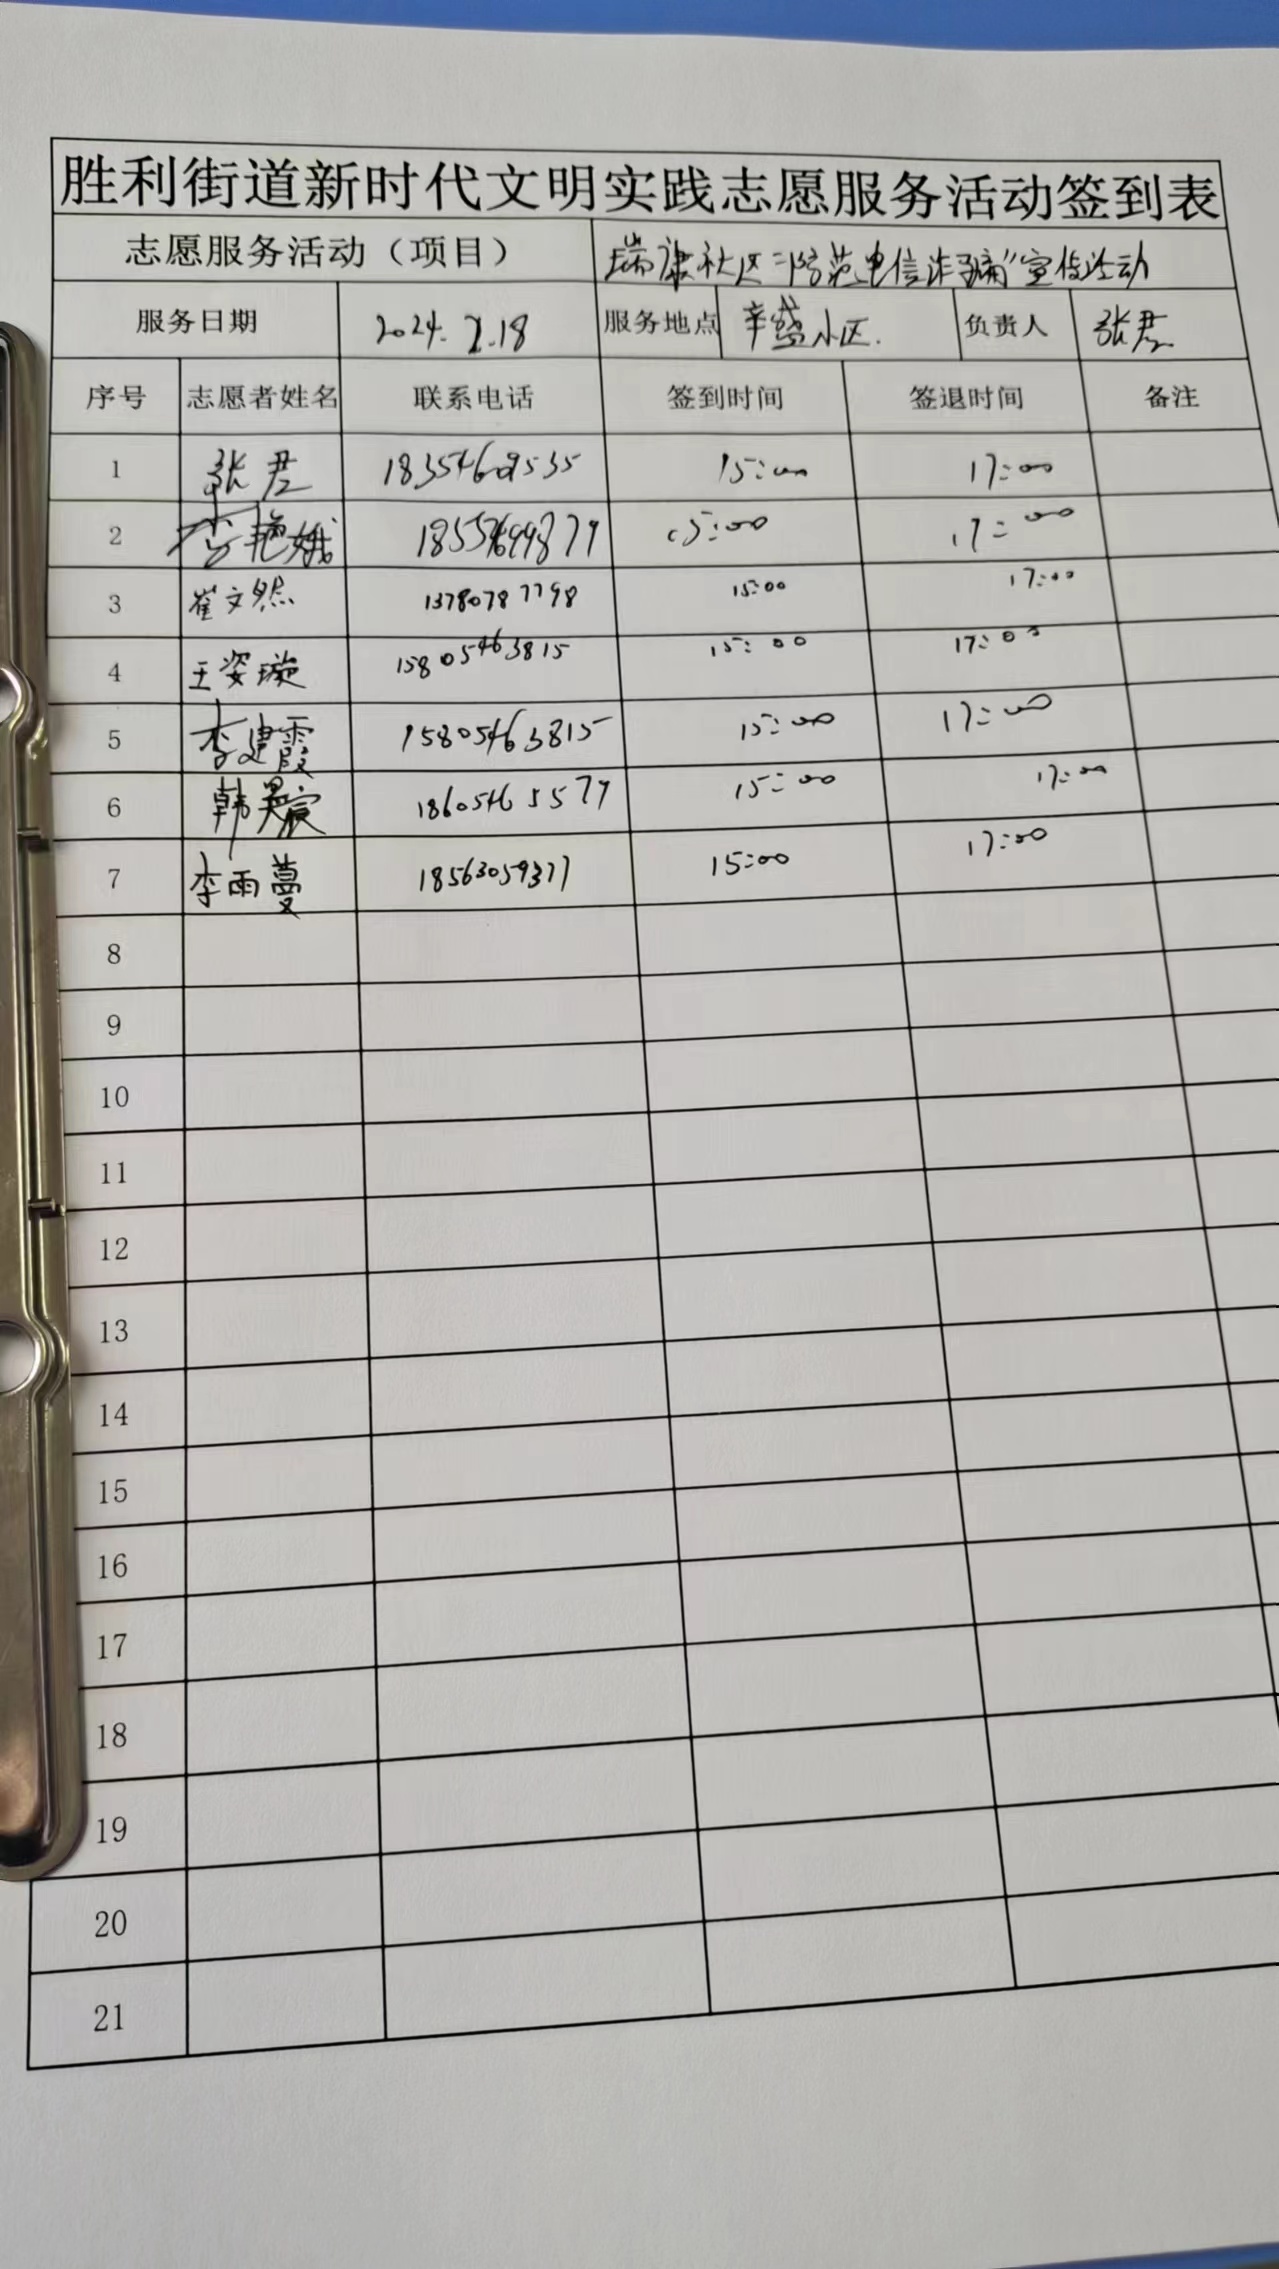 胜利街道新时代文明实践志愿服务活动签到表
志愿服务活动（项目） 瑞康社区"防范电信诈骗"宣传活动
服务日期 2024.7.18 服务地点 辛盛小区. 负责人 张君
序号 志愿者姓名 联系电话 签到时间 签退时间 备注
1 张君 18354609535 15:00 17:00
2 李艳娥 15:00 17:00
3 崔文然 13780787798 15:00 17:00
4 王姿璇 15805463815 15:00 17:00
5 李建霞 15805463815 15:00 17:00
6 韩昊宸 18605465579 15:00 17:00
7 李雨蔓 18563059377 15:00 17:00
8
9
10
11
12
13
14
15
16
17
18
19
20
21